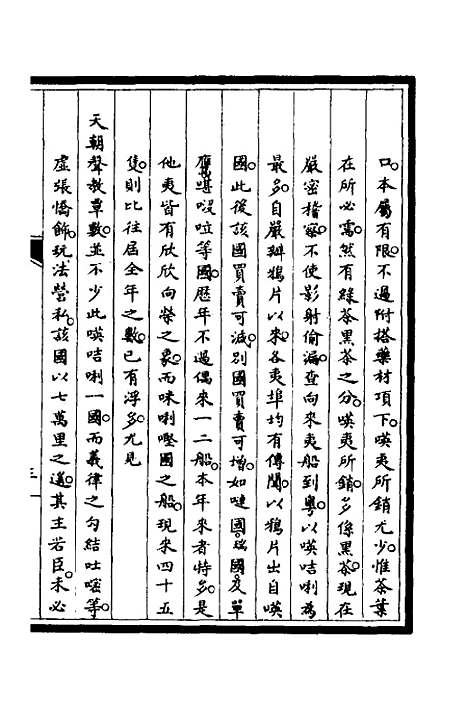 口。本屬有限。不過附搭藥材項下。㗆夷所销尤少。惟茶葉
在所必需。然有綠茶黑茶之分。㗆夷所銷。多係黑茶。現在
嚴密稽察。不使影射偷漏。查向來夷船到粤。以㗆咭唎為
最多。自嚴辦鴉片以來。各夷埠均有傳聞。以鴉片出自㗆
國。此後該國買賣可減。別國買賣可增。如嗹國。瑞國。及單
鷹𠸄啵啦等國。歷年不過偶來一二船。本年來者特多。是
他夷皆有欣欣向榮之象。而咪唎𠼤國之船。現來四十五
隻。則比往屆全年之數。已有浮多。尤見
天朝聲教覃敷。並不少此㗆咭唎一國。而義律之勾結吐嘧等。
虛張憍飾。玩法營私。該國以七萬里之遙。其主若臣。未必
三